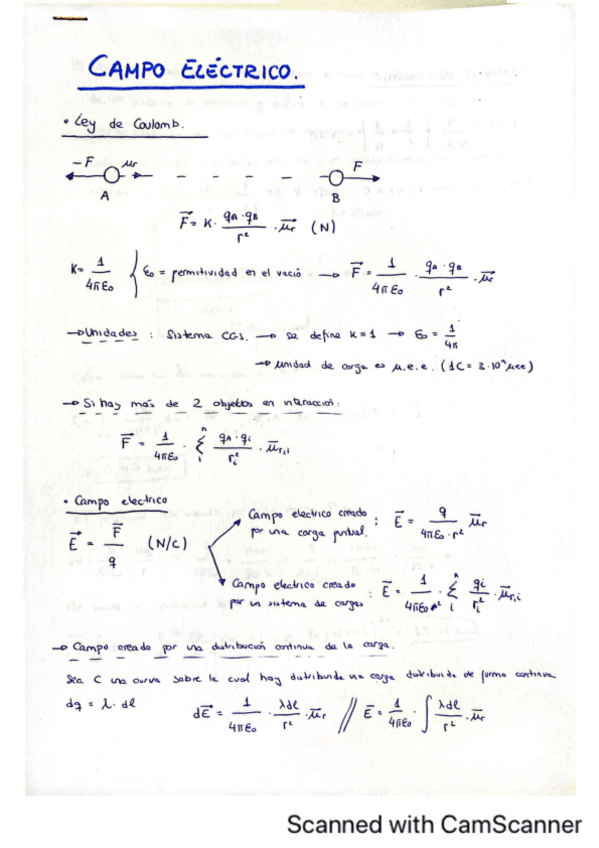 CAMPO ELÉCTRICO.
• Ley de Coulomb.
-F μr - - - - F
A B
F⃗ = K · qA·qB / r² · μ⃗r (N)
K = 1 / 4πε0 { ε0 = permitividad en el vació → F⃗ = 1 / 4πε0 · qA · qB / r² · μ⃗r
→ Unidades : Sistema CGS. → se define K=1 → ε0 = 1 / 4π
→ unidad de carga es u.e.e. (1C = 3·10⁹ uee)
→ Si hay más de 2 objetos en interacción:
F⃗ = 1 / 4πε0 · Σ i n qA · qi / ri² · μ⃗r,i
• Campo electrico
E⃗ = F⃗ / q (N/C)
Campo electrico creado por una carga puntual. : E⃗ = q / 4πε0 · r² μ⃗r
Campo electrico creado por un sistema de cargas : E⃗ = 1 / 4πε0 · Σ i n qi / ri² · μ⃗r,i
→ Campo creado por una distribución continua de la carga.
Sea C una curva sobre la cual hay distribuida una carga distribuida de forma continua
dq = λ · dl dE⃗ = 1 / 4πε0 · λdl / r² · μ⃗r // E⃗ = 1 / 4πε0 · ∫ λdl / r² · μ⃗r
Scanned with CamScanner